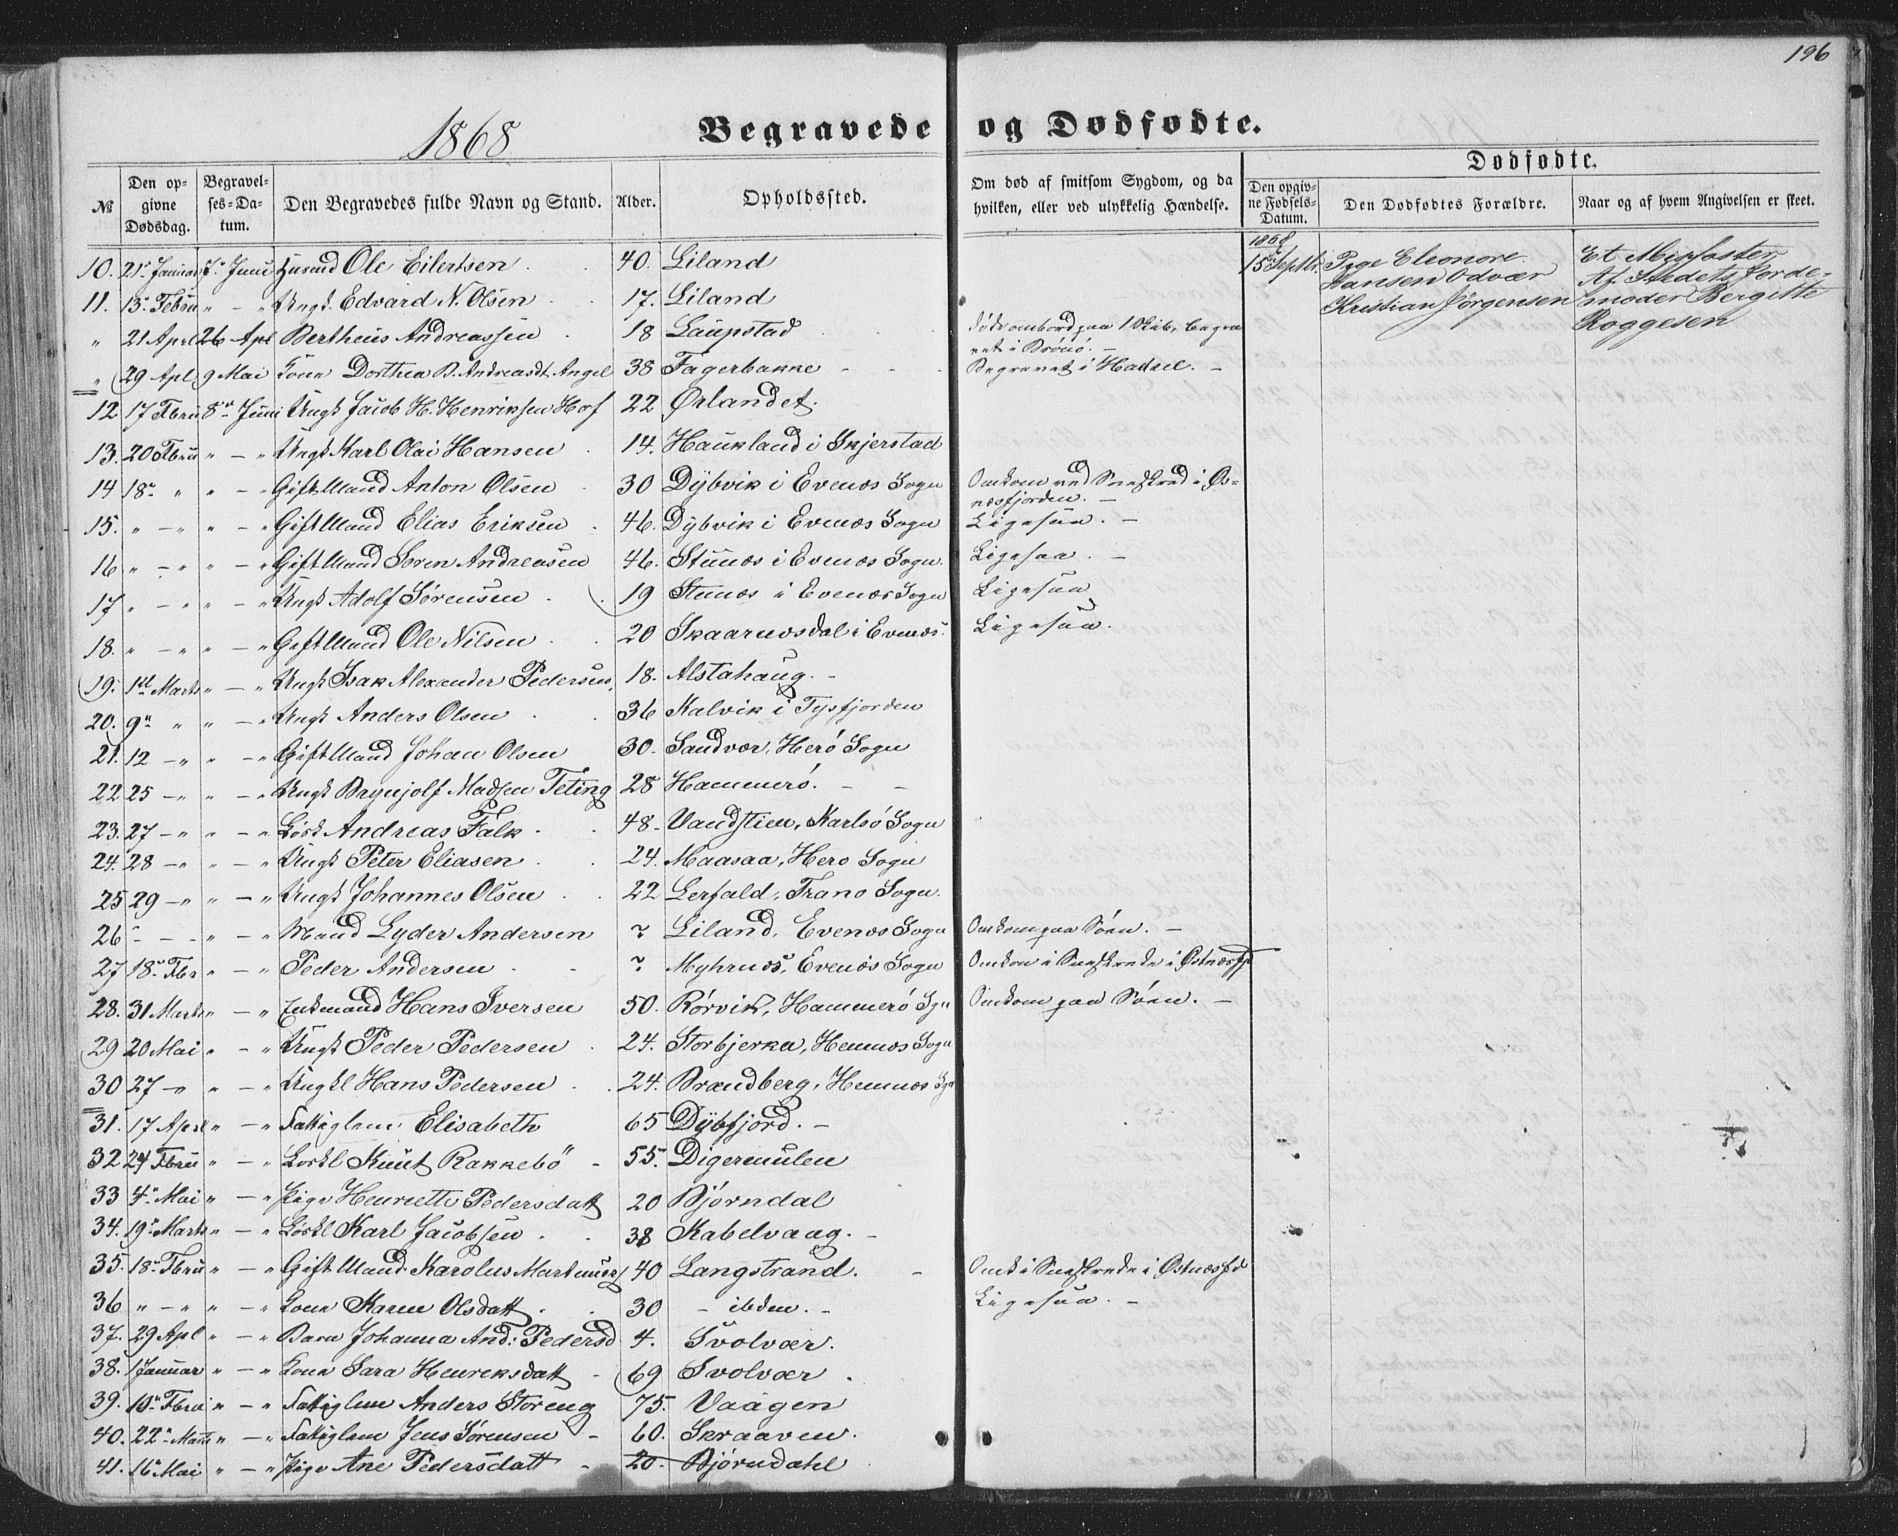 196
1868 Begravede og Dødfødte.
Dødfødte.
№ Den opgivne Dødsdag. Begravelses-Datum. Den Begravedes fulde Navn og Stand. Alder. Opholdssted. Om død af smitsom Sygdom, og da hvilken, eller ved ulykkelig Hændelse. Den opgivne Fødsels-Datum. Den Dødfødtes Forældre. Naar og af hvem Angivelsen er skeet.
10. 21 Januar 7. Juni Ole Eilertsen 40. Liland 1868 15 Septbr. Pige Eleonore Et Misfoster
Hansen Odvær Af Stedets Jorde-
11. 13 Febru " - " Ungk Edvard N. Olsen 17. Liland Kristian Jørgensen moder Bergitte
Roggesen
" 21 Aprl 26 Apl Bertheus Andreassen 18 Laupstad Døde ombord paa 1 Skib, begra
vet i Brönö. -
" 29 Apl 9 Mai Kone Dorthea B. Andreasdt Angel 38 Fagerbakke - - - Begravet i Hadsel. -
12. 17 Fbru 8de Juni Ungk Jacob H. Henriksen Hof 22 Ørlandet.
13. 20 Fbru " - " Ungk Karl Olai Hansen 14. Haukland i Skjerstad
14 18 " " - " Gift Mand Anton Olsen 30 Dybvik i Evenæs Sogn Omkom ved Sneskred i Øs-
næsfjorden. -
15. " - " " - " Gift Mand Elias Eriksen 46. Dybvik i Evenæs Sogn Ligesaa. -
16 " - " " - " Gift Mand Søren Andreasen 46. Stunæs i Evenæs Sogn. Ligesaa. -
17 " - " " - " Ungk Adolf Sørensen 19 Stunæs i Evenæs Sogn Ligesaa
18. " - " " - " Gift Mand Ole Nilsen 20 Skaarnæsdal i Evenæs. Ligesaa.
19. 1ste Marts " - " Ungk Isak Alexander Pedersen, 18. Alstahaug. -
20. 9 " " - " Ungk Anders Olsen 36 Kalvik i Tysfjorden
21. 12 - " " - " Gift Mand Johan Olsen 30. Sandvær, Herö Sogn
22 25 - " " - " Ungk Brynjolf Madsen Teting 28 Hammerö. - -
23. 27 - " " - " Losk Andreas Falk 48. Vandstien, Karlsö Sogn
24. 28 - " " - " Ungk Peter Eliasen 24. Maasaa, Hero Sogn
25 29 - " " - " Ungk Johannes Olsen 22 Lerfald, Trano Sogn.
26 - - " - " Mand Lyder Andersen ? Liland, Evenæs Sogn Omkom paa Søen. -
27 18 Fbr " - " Peder Andersen ? Myhrnæs, Evenæs Sogn Omkom i Sneskrede i Østnæsfj
28. 31 Marts " - " Enkemand Hans Iversen 50. Rörvik, Hammerö Sgn Omkom paa Søen. -
29 20 Mai " - " Ungk Peder Pedersen 24. Storbjerka, Hemnæs Sogn
30 27 - " " - " Ungkl Hans Pedersen 24. Brændberg, Hemnæs Sgn
31. 17 Aprl " - " Fattiglem Elisabeth 65 Dybfjord. -
32 24 Fbru " - " Loskl Knut Rakkebö - 55. Digermulen
33 4 Mai " - " Pige Henriette Pedersdatt 20 Björndal
34. 19 Marts " - " Loskl Karl Jacobsen 38 Kabelvaag. -
35. 18 Fbru " - " Gift Mand Karolus Martinus 40 Langstrand. - Omk i Sneskrede i Østnæsfd
36 " - " " - " Kone Karen Olsdatt 30 - ibden. - Ligesaa. -
37. 29 Apl " - " Barn Johanna And: Pedersd 4. Svolvær.
38. 1 Januar " - " Kone Sara Henriksdatt 69 Svolvær.
39. 10 Fbru " - " Fattiglem Anders Storeng 75. Vaagen
40. 22 Marts " - " Fattiglem Jens Sørensen - 60. Skraaven.
41. 16 Mai " - " Pige Ane Pedersdatt - 20. Björndahl